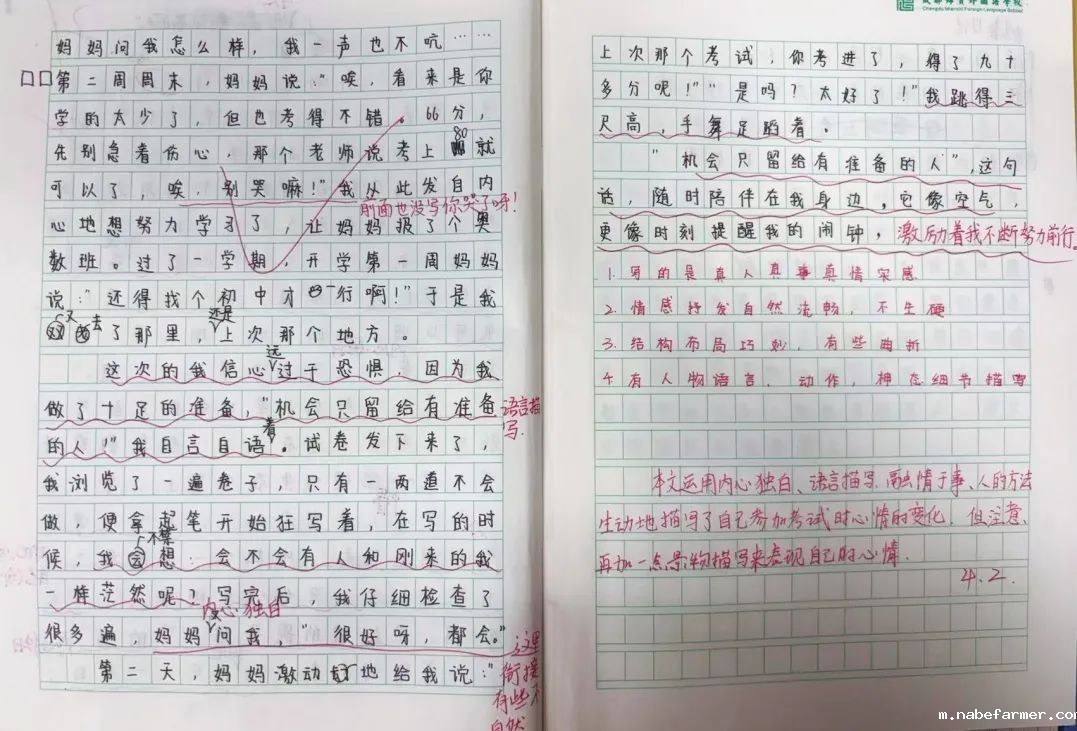 妈妈问我怎么样，我一声也不吭……
口口第二周周末，妈妈说："唉，看来是你
学的太少了，但也考得不错。66分，
80
先别急着伤心，那个老师说考上就
可以了，唉，别哭嘛！"我从此发自内
前面也没写你哭了呀！
心地想努力学习了，让妈妈报了个奥
数班。过了一学期，开学第一周妈妈
说："还得找个初中才一行啊！"于是我
又去 还是
了那里，上次那个地方。
远
这次的我信心过于恐惧，因为我
做了十足的准备，"机会只留给有准备
语言描写.
着
的人！"我自言自语。试卷发下来了，
我浏览了一遍卷子，只有一两道不会
做，便拿起笔开始狂写着，在写的时
不禁
候，我想：会不会有人和刚来的我
一样茫然呢？写完后，我仔细检查了
内心独白
很多遍，妈妈问我，"很好呀，都会。"
第二天，妈妈激动地给我说："
这里衔接有些不自然
成都师育外国语学校
Chengdu Foreign Language School
上次那个考试，你考进了，得了九十
多分呢！""是吗？太好了！"我跳得三
尺高，手舞足蹈着。
"机会只留给有准备的人"，这句
话，随时陪伴在我身边。它像空气，
更像时刻提醒我的闹钟，激励着我不断努力前行。
1.写的是真人真事真情实感
2.情感抒发自然流畅，不生硬
3.结构布局巧妙，有些曲折
4.有人物语言、动作，神态细节描写
本文运用内心独白、语言描写.融情于事、人的方法
生动地描写了自己参加考试时心情的变化！但注意、
再加一点景物描写来表现自己的心情.
4.2.
m.nabefarmer.com